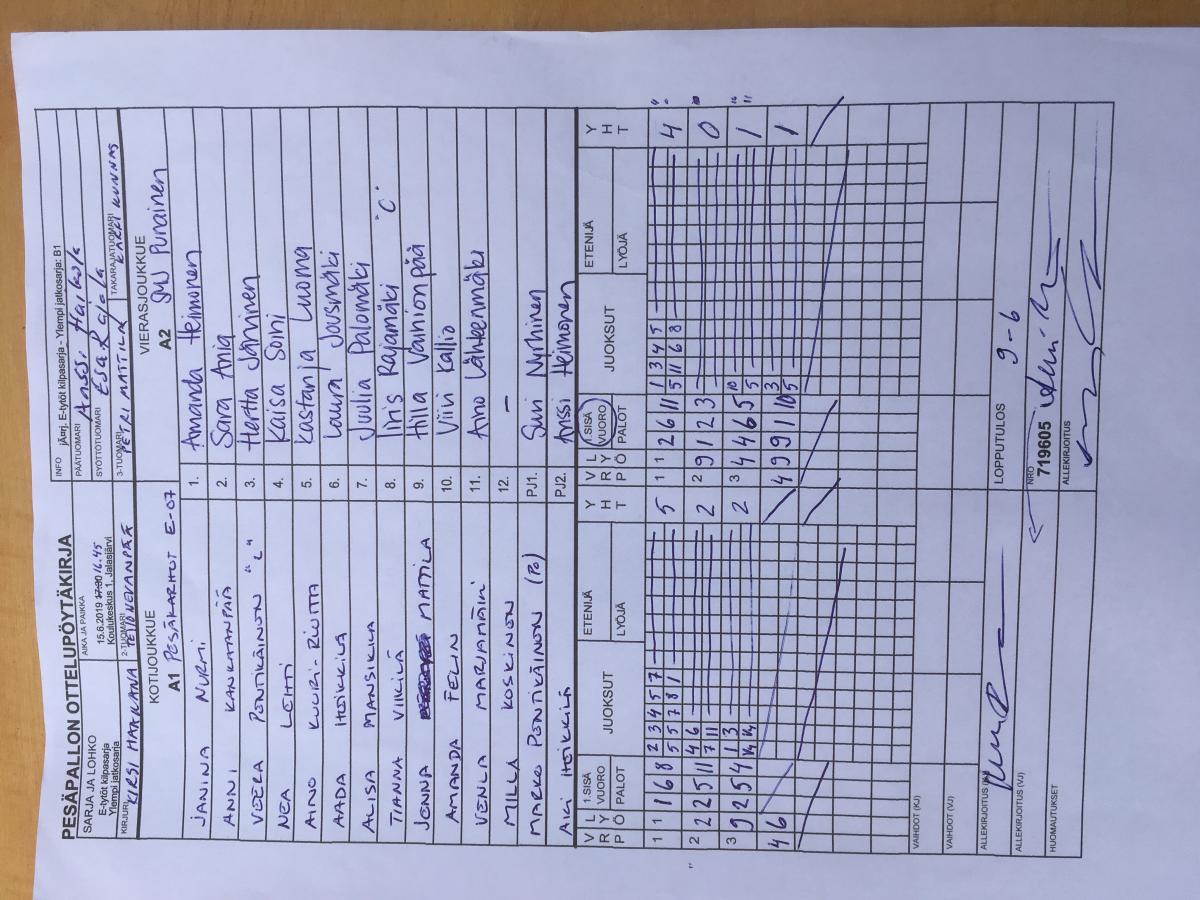 PESÄPALLON OTTELUPÖYTÄKIRJA
SARJA JA LOHKO
E-tytöt kilpasarja
Ylempi jatkosarja
AIKA JA PAIKKA
15.6.2019 17.30 16.45
Koulukeskus 1, Jalasjärvi
INFO jÄrrj. E-tytöt kilpasarja - Ylempi jatkosarja: B1
PÄÄTUOMARI Anssi
SYÖTTÖTUOMARI Esa Rajala
KIRJURI KIRSI HAAKANA
2-TUOMARI
3-TUOMARI PETRI MATTILA
TAKARAJATUOMARI KUNNAS
KOTIJOUKKUE
A1 PESÄKARHUT E-07
VIERASJOUKKUE
A2 Punainen
JANINA NURMI 1. Amanda Heimonen
ANNI KANKAANPÄÄ 2. Sara Ania
VEERA PONTIKÄINON "L" 3. Hertta Järvinen
NEA LEHTI 4. Kaisa Soini
AINO KUURI-RIUTTA 5. Kastanja Luoma
AADA HEIKKILÄ 6. Laura Jousmäki
ALISA MANSIKKA 7. Juulia Palomäki
TIANNA VIIKILÄ 8. Iiris Rajamäki "C"
JENNA MATTILA 9. Hilla Vainionpää
AMANDA FELIN 10. Viivi Kallio
VENLA MARJAMÄKI 11. Aino Lähteenmäki
MILLA KOSKINON 12. –
MARKO PONTIKÄINON (PJ) PJ1. Suvi Nyrhinen
HEIKKILÄ PJ2. Anssi Heimonen
V R P L Y Ö 1.SISÄ VUORO PALOT JUOKSUT ETENIJÄ LYÖJÄ Y H T
V R P L Y Ö 1.SISÄ VUORO PALOT JUOKSUT ETENIJÄ LYÖJÄ Y H T
1 1 1 6 8 2 3 4 5 7 5
5 5 7 8 1
1 1 2 6 11 1 3 4 5 4
5 11 6 8
2 2 2 5 11 4 6 2
7 11
2 9 1 2 3 0
3 9 2 5 4 1 3 2
3 4 4 6 5 10 1
5
4 6
4 9 9 1 10 3 1
5
VAIHDOT (KJ)
VAIHDOT (VJ)
ALLEKIRJOITUS (KJ)
LOPPUTULOS 9-6
ALLEKIRJOITUS (VJ)
NRO
719605
HUOMAUTUKSET
ALLEKIRJOITUS